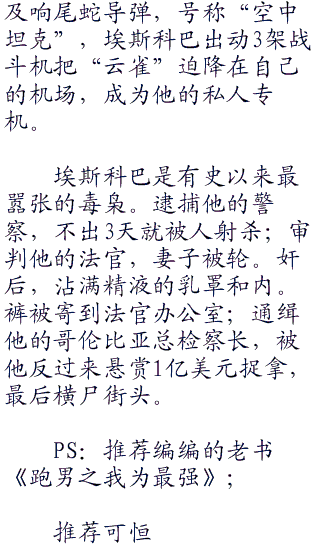 及响尾蛇导弹，号称“空中
坦克”，埃斯科巴出动3架战
斗机把“云雀”迫降在自己
的机场，成为他的私人专
机。
埃斯科巴是有史以来最
嚣张的毒枭。逮捕他的警
察，不出3天就被人射杀；审
判他的法官，妻子被轮。奸
后，沾满精液的乳罩和内。
裤被寄到法官办公室；通缉
他的哥伦比亚总检察长，被
他反过来悬赏1亿美元捉拿，
最后横尸街头。
PS：推荐编编的老书
《跑男之我为最强》；
推荐可恒